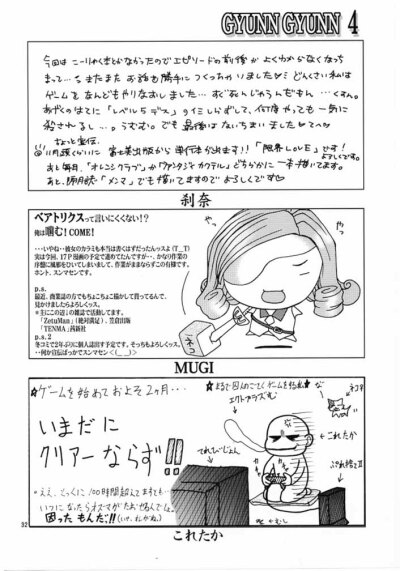 GYUNN GYUNN 4
今回は こーりゃくまとがなかったのでエピソードの前後が よくわかんなくなっち
まって…。またまた お話も勝手につくっちゃいましたヽ どんくさい私は
ゲームを なんどもやりなおしました…
あげくのはてに「レベル5デス」のイミしらずして、何度やっても一気に
殺されるし…。でも最後はないちまいました
ちょっと宣伝
11月頭くらいに 富士美出版から単行本が出ます!!「限界LOVE」です!
よろしくです。
あと毎月、「オレンジクラブ」か「ファンタジィカクテル」どちらかに一本描いてます。
あと、隔月誌「メンマ」でも描いてますのでよろしくです
刹奈
ベアトリクスって言いにくくない!?
俺は噛む!COME!
・・・いやね・・彼女のカラミも本当は書くはずだったんッスよ(T_T)
実は今回、17P漫画の予定で進めてたんですが・・かなり作業の
序盤に風邪をひいてしまいまして、作業がままならずこの有様です。
ホント、スンマセンです。
p.s.
最近、商業誌の方でもちょこちょこ描かして貰ってるんで、
見かけましたらよろしくッス。
*主にこの辺↓の雑誌で活動してます。
「ZetuMan」(絶対満足)、笠倉出版
「TENMA」茜新社
p.s.2
冬コミで2年ぶりに個人誌出す予定です、そっちもよろしくッス。
・・何か宣伝ばっかでスンマセン<(_ _)>
カッ
カッ
ネコ
MUGI
☆ゲームを始めておよそ2ヶ月・・・
いまだに
クリアーならず!!
*ええ、とっくに100時間超えてますとも…
困ったもんだ!!
☆まるで囚人のごとくゲームを始める
エクトプラズム
な
ネコキ
これたか
てれびじょん
ぷれ捨てII
32
これたか